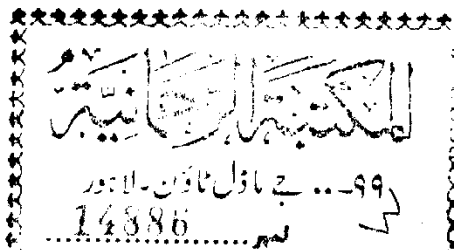 المكتبة الرحمانية
۹۹... جے ماڈل ٹاؤن - لاہور
نمبر 14886